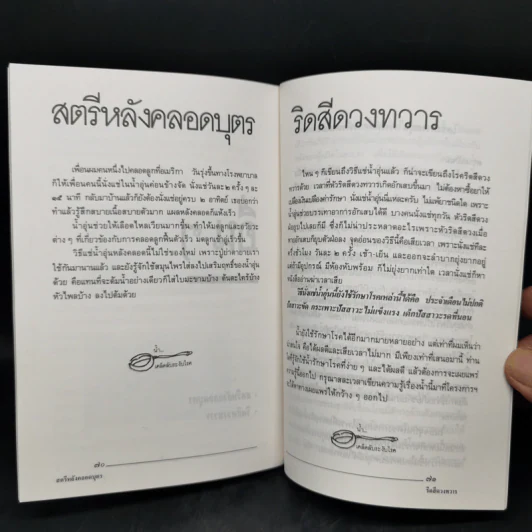 สตรีหลังคลอดบุตร
เพื่อนผมคนหนึ่งไปคลอดลูกที่อเมริกา วันรุ่งขึ้นทางโรงพยาบาล
ก็ให้เพื่อนคนนี้นั่งแช่ในน้ำอุ่นค่อนข้างจัด นั่งแช่วันละ ๒ ครั้ง ๆ ละ
๑๕ นาที กลับมาบ้านแล้วก็ยังต้องนั่งแช่อยู่ครบ ๒ อาทิตย์ เธอบอกว่า
ทำแล้วรู้สึกสบายเนื้อสบายตัวมาก แผลหลังคลอดก็แห้งเร็ว
น้ำอุ่นช่วยให้เลือดไหลเวียนมากขึ้น ทำให้มดลูกและอวัยวะ
ต่าง ๆ ที่เกี่ยวข้องกับการคลอดลูกฟื้นตัวเร็ว มดลูกเข้าอู่เร็วขึ้น
วิธีแช่น้ำอุ่นหลังคลอดนี้ไม่ใช่ของใหม่ เพราะปู่ย่าตายายเรา
ใช้กันมานานแล้ว และยังรู้จักใช้สมุนไพรใส่ลงไปเสริมฤทธิ์ของน้ำอุ่น
ด้วย คือแทนที่จะต้มน้ำอย่างเดียวก็ใส่ใบมะขามบ้าง ต้นตะไคร้บ้าง
หัวไพลบ้าง ลงไปต้มด้วย
น้ำ...
เคล็ดลับระงับโรค
๗๐
สตรีหลังคลอดบุตร
ริดสีดวงทวาร
ไหน ๆ ก็เขียนถึงวิธีแช่น้ำอุ่นแล้ว ก็น่าจะเขียนถึงโรคริดสีดวง
ทวารด้วย เวลาที่หัวริดสีดวงทวารเกิดอักเสบขึ้นมา ไม่ต้องหาซื้อยาให้
เปลืองเงินเปลืองค่ารักษา นั่งแช่น้ำอุ่นนี่แหละครับ ไม่แพ้ยาชนิดใด เพราะ
น้ำอุ่นช่วยบรรเทาอาการอักเสบได้ดี บางคนนั่งแช่ทุกวัน หัวริดสีดวง
ยุบไปเลยก็มี ซึ่งก็ไม่น่าประหลาดอะไรเพราะหัวริดสีดวงเมื่อ
หายอักเสบก็ยุบตัวลง จุดอ่อนของวิธีนี้คือเสียเวลา เพราะนั่งแช่ทีละ
ครึ่งชั่วโมง วันละ ๒ ครั้ง เช้า-เย็น และออกจะลำบากยุ่งยากอยู่
แต่ถ้ามีอุปกรณ์ มีห้องหับพร้อม ก็ไม่ยุ่งยากเท่าใด เวลานั่งแช่ก็หา
หนังสืออ่านฆ่าเวลาเสีย
วิธีนั่งแช่น้ำอุ่นนี้ยังใช้รักษาโรคเหล่านี้ได้คือ ประจำเดือนไม่ปกติ
ปัสสาวะขัด กระเพาะปัสสาวะไม่แข็งแรง เด็กปัสสาวะรดที่นอน
น้ำยังใช้รักษาโรคได้อีกมากมายหลายอย่าง แต่เท่าที่ผมเห็นว่า
คือได้ผลดีและเสียเวลาไม่มาก มีเพียงเท่าที่เสนอมานี้ ท่าน
รู้จักใช้น้ำรักษาโรคที่ง่าย ๆ และได้ผลดี แล้วต้องการจะเผยแพร่
ความรู้นี้ออกไป กรุณาสละเวลาเขียนความรู้เรื่องน้ำนี้มาที่โครงการฯ
จะได้หาทางเผยแพร่ให้กว้าง ๆ ออกไป
น้ำ...
เคล็ดลับระงับโรค
๗๑
ริดสีดวงทวาร